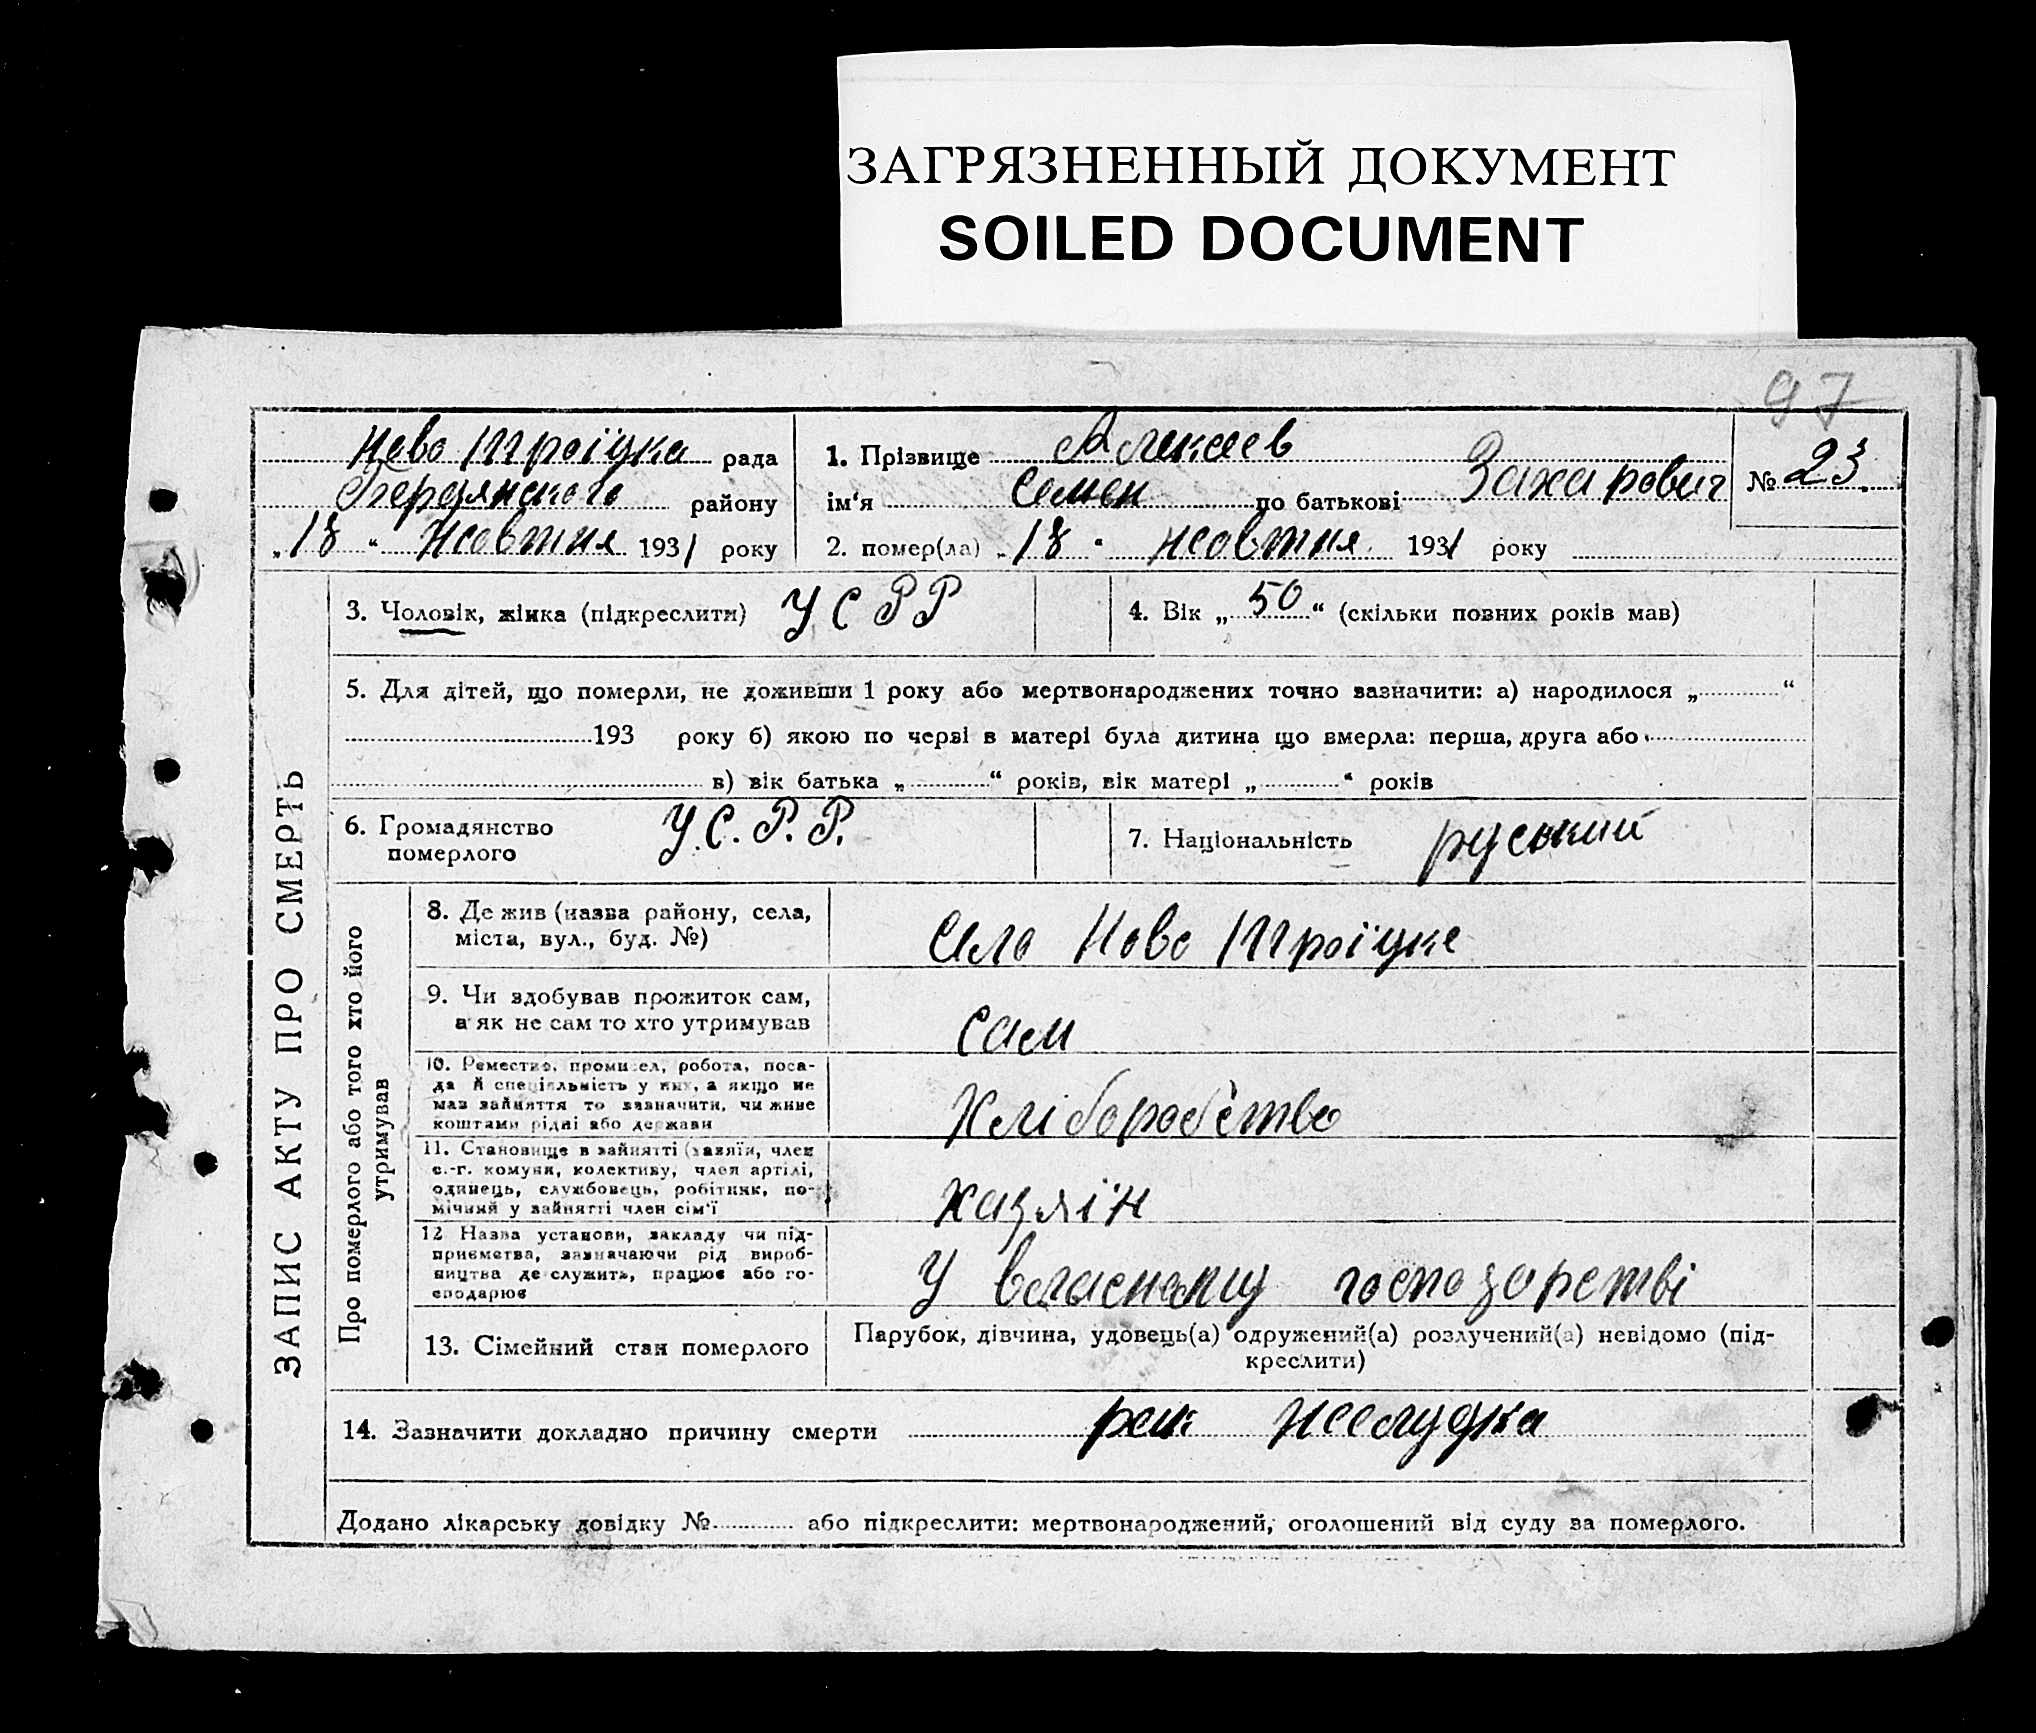 ЗАГРЯЗНЕННЫЙ ДОКУМЕНТ
SOILED DOCUMENT
97
Ново Троїцка рада
Бердянского району
„18“ жовтня 1931 року
1. Прізвище Алексеев
ім'я Семен по батькові Захарович
№ 23.
2. помер(ла) „18“ жовтня 1931 року
ЗАПИС АКТУ ПРО СМЕРТЬ
3. Чоловік, жінка (підкреслити) УСРР
4. Вік „50“ (скільки повних років мав)
5. Для дітей, що померли, не доживши 1 року або мертвонароджених точно зазначити: а) народилося „ “
193 року б) якою по черзі в матері була дитина що вмерла: перша, друга або
в) вік батька „ “ років, вік матері „ “ років
6. Громадянство
померлого
У.С.Р.Р.
7. Національність руський
Про померлого або того хто його
утримував
8. Де жив (назва району, села,
міста, вул., буд. №)
село Ново Троїцке
9. Чи здобував прожиток сам,
а як не сам то хто утримував
сам
10. Ремество, промисел, робота, поса-
да й спеціяльність у них, а якщо не
мав зайняття то зазначити, чи живе
коштами рідні або держави
Хлібороб'ство
11. Становище в зайнятті (хазяїн, член
с.-г. комуни, колективу, член артілі,
одинець, службовець, робітник, по-
мічний у зайнятті член сім'ї
хазяїн
12 Назва установи, закладу чи під-
приємства, зазначаючи рід вироб-
ництва де служить, працює або го-
сподарює
У власному господарстві
13. Сімейний стан померлого
Парубок, дівчина, удовець(а) одружений(а) розлучений(а) невідомо (під-
креслити)
14. Зазначити докладно причину смерти рак желудка
Додано лікарську довідку № або підкреслити: мертвонароджений, оголошений від суду за померлого.